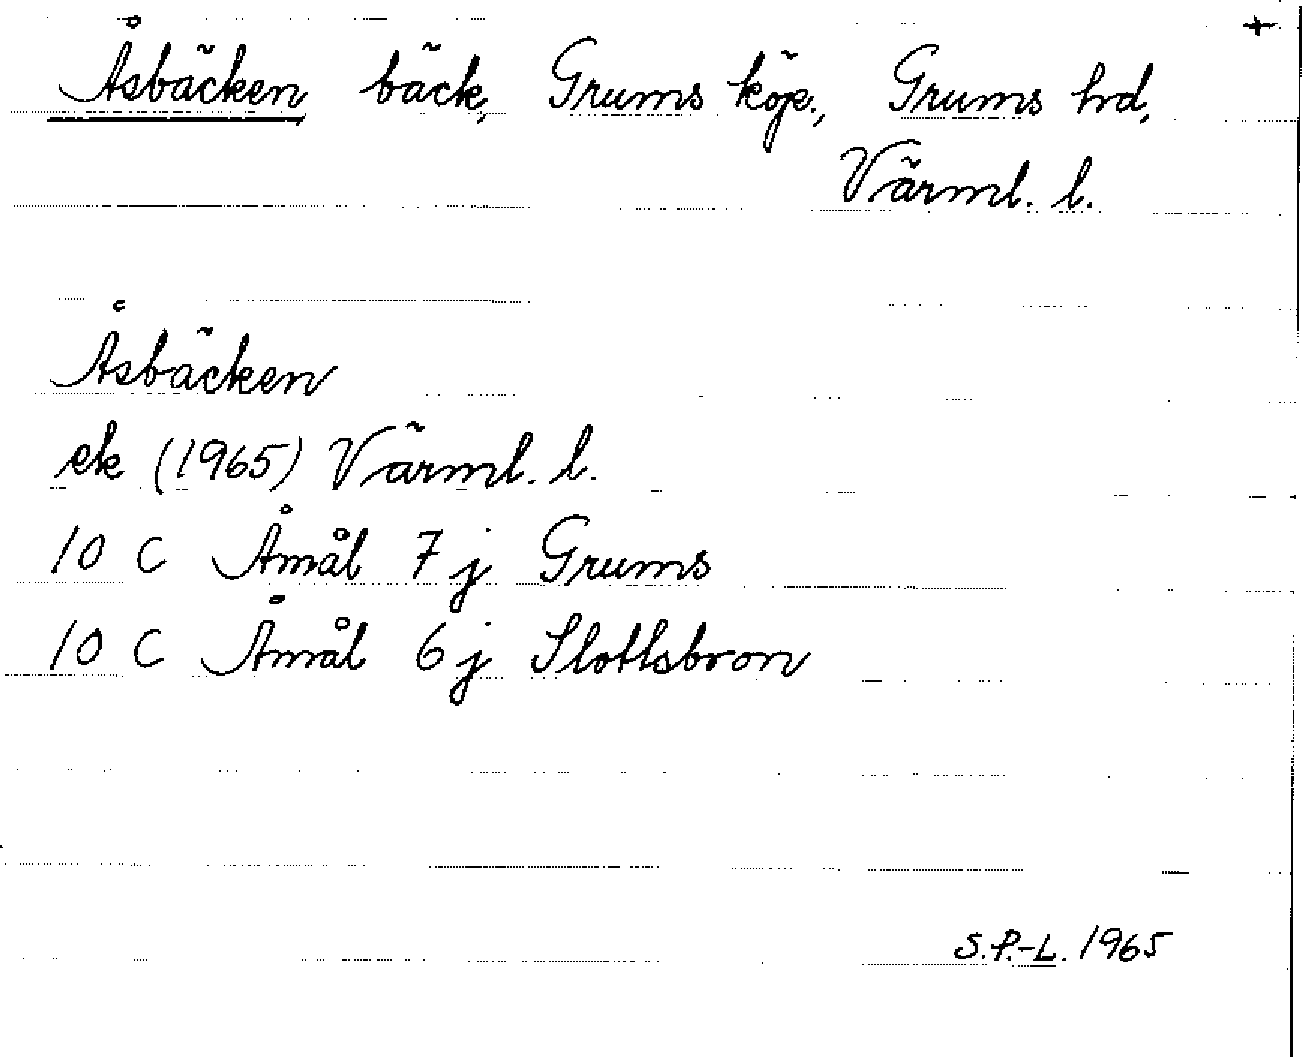 +
Åsbäcken bäck, Grums köp., Grums hd,
Värml. l.
Åsbäcken
ek (1965) Värml. l.
10 C Åmål 7 j Grums
10 C Åmål 6 j Slottsbron
S.P.-L. 1965